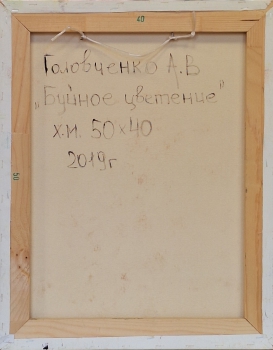 40
Головченко А.В
„Буйное цветение"
х.м. 50х40
2019г
50